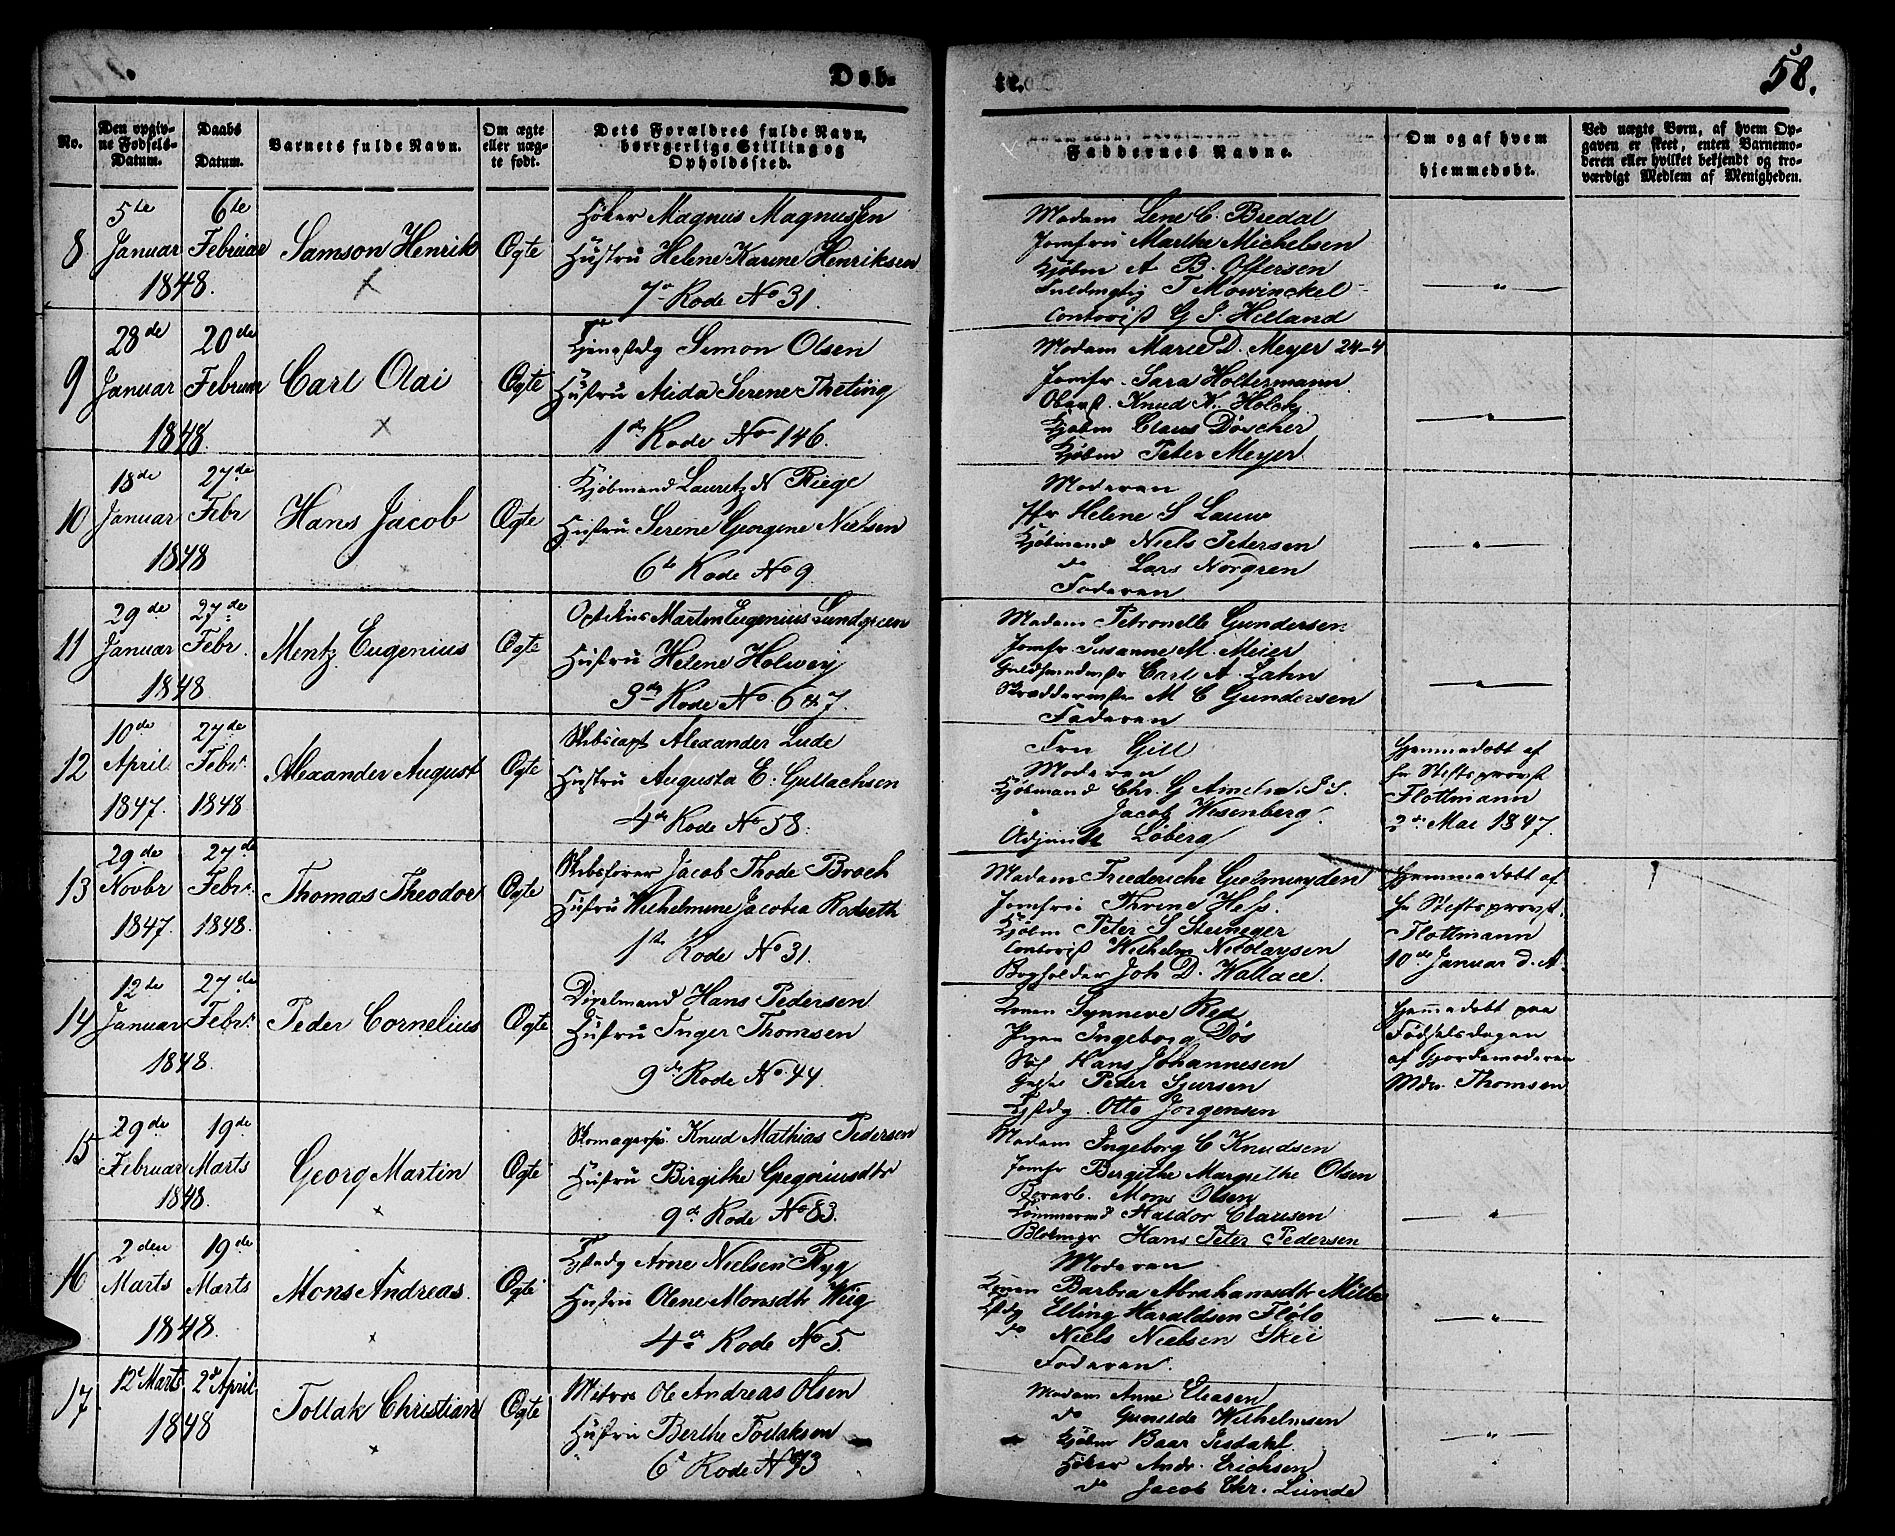 Døb-
te.
58.
No.
Den opgiv-
ne Fødsels-
Datum.
Daabs
Datum.
Barnets fulde Navn.
Om ægte
eller uæg-
te født.
Dets Forældres fulde Navn,
borgerlige Stilling og
Opholdssted.
Faddernes Navne.
Om og af hvem
hjemmedøbt.
Ved uægte Børn, af hvem Op-
gaven er skeet, enten Barnemo-
deren eller hvilket bekjendt og tro-
værdigt Medlem af Menigheden.
8
5te
Januar
6te
Februar
1848.
Samson Henrik
Ægte
Høker Magnus Magnussen
Hustru Helene Karine Henriksen
7de Rode No 31.
Madam Lene C. Bredal
Jomfru Marthe Michelsen
Kjøbm A B. Offersen
Fuldmgtig T Mowinckel
Contorist G J. Helland
9
28de
Januar
20de
Februar
1848.
Carl Olai
Ægte
Simon Olsen
Hustru Alida Serene Theting
1de Rode No 146.
Madam Marie D. Meyer 24-4
Jomfr. Sara Holtermann
Knud K. Holck
Kjøbm Claus Döscher
Kjøbm Peter Meyer
10
18de
Januar
27de
Febr
1848
Hans Jacob
Ægte
Kjøbmand Lauritz N Riege
Hustru Serene Georgine Nielsen
6te Rode No 9
Moderen
Jfr Helene S Lauw
Kjøbmand Niels Petersen
do Lars Norgren
Faderen
11
29de
Januar
27de
Febr.
1848
Mentz Eugenius
Ægte
Martin Eugenius Lundgreen
Hustru Helene Holwey
3de Rode No 6 & 7.
Madam Petronelle Gundersen
Jomfr. Susanne M. Meier
Guldsmedmstr Carl A. Zahn
Skræddermster M C Gundersen
Faderen
12
10de
April
1847.
27de
Febr.
1848
Alexander August
Ægte
Skibscapt Alexander Lude
Hustru Augusta E. Gullachsen
4de Rode No 58.
Fru Gill
Moderen
Kjøbmand Chr. G Ameln
Jacob Wesenberg.
Adjunkt Løberg
Hjemmedøbt af
Hr Stiftsprovst
Flottmann
2de Mai 1847.
13
29de
Novbr
1847.
27de
Febr.
1848.
Thomas Theodor
Ægte
Skibsfører Jacob Thode Broch
Hustru Wilhelmine Jacobia Rodseth
1ste Rode No 31.
Madam Friederiche Gjelmuyden
Jomfru Thrine Hess.
Kjøbm Peter S Steineger
Contorist Wilhelm Nicolaysen
Bogholder Joh D. Wallace.
Hjemmedøbt af
Hr Stiftsprovst.
Flottmann
10de Januar d. A.
14
12de
Januar
27de
Febr.
1848.
Peder Cornelius
Ægte
Hans Pedersen
Hustru Inger Thomsen
9de Rode No 44.
Konen Synneve Rea
Pigen Ingeborg Døs
Hans Johannesen
Peter Sjursen
Otto Jørgensen
Hjemmedøbt paa
Fødselsdagen
af Gjordemoderen
Mdm. Thomsen
15
29de
Februar
19de
Marts
1848.
Georg Martin
Ægte
Knud Mathias Pedersen
Hustru Birgithe Gregoriusdtr
9de Rode No 83.
Madam Ingeborg C Knudsen
Jomfr Birgithe Margrethe Olsen
Mons Olsen
Tømmermd Haldor Clausen
Hans Peter Pedersen
16
2den
Marts
19de
Marts
1848.
Mons Andreas.
Ægte
Arne Nielsen Ryg
Hustru Olene Monsdtr Weig
4de Rode No 5.
Moderen
Konen Barbra Abrahamsdtr Milde
Elling Haraldsen Flølo
do Niels Nielsen Skei
Faderen.
17
12te Marts
2de April
1848
Tollak Christian
Ægte
Matros Ole Andreas Olsen
Hustru Berthe Tollaksen
6te Rode No 93
Madam Anne Eliasen
do Gunilde Wilhelmsen
Kjøbm Baar Jisdahl.
Høker Andr. Erichsen
do Jacob Chr. Lunde